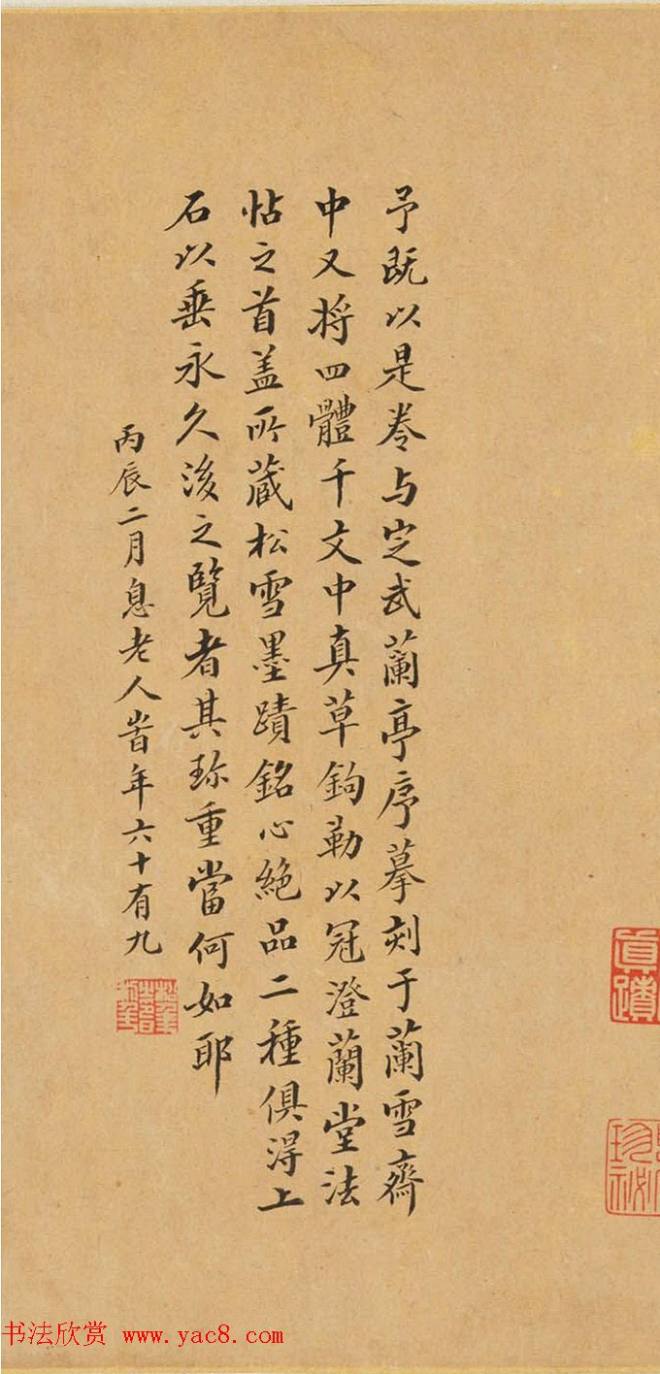 予既以是卷与定武蘭亭序摹刻于蘭雪齋
中又将四體千文中真草鉤勒以冠澄蘭堂法
帖之首盖所藏松雪墨蹟銘心絶品二種俱得上
石以垂永久後之覽者其珎重當何如耶
丙辰二月息老人時年六十有九
真蹟
書法欣赏 www.yac8.com